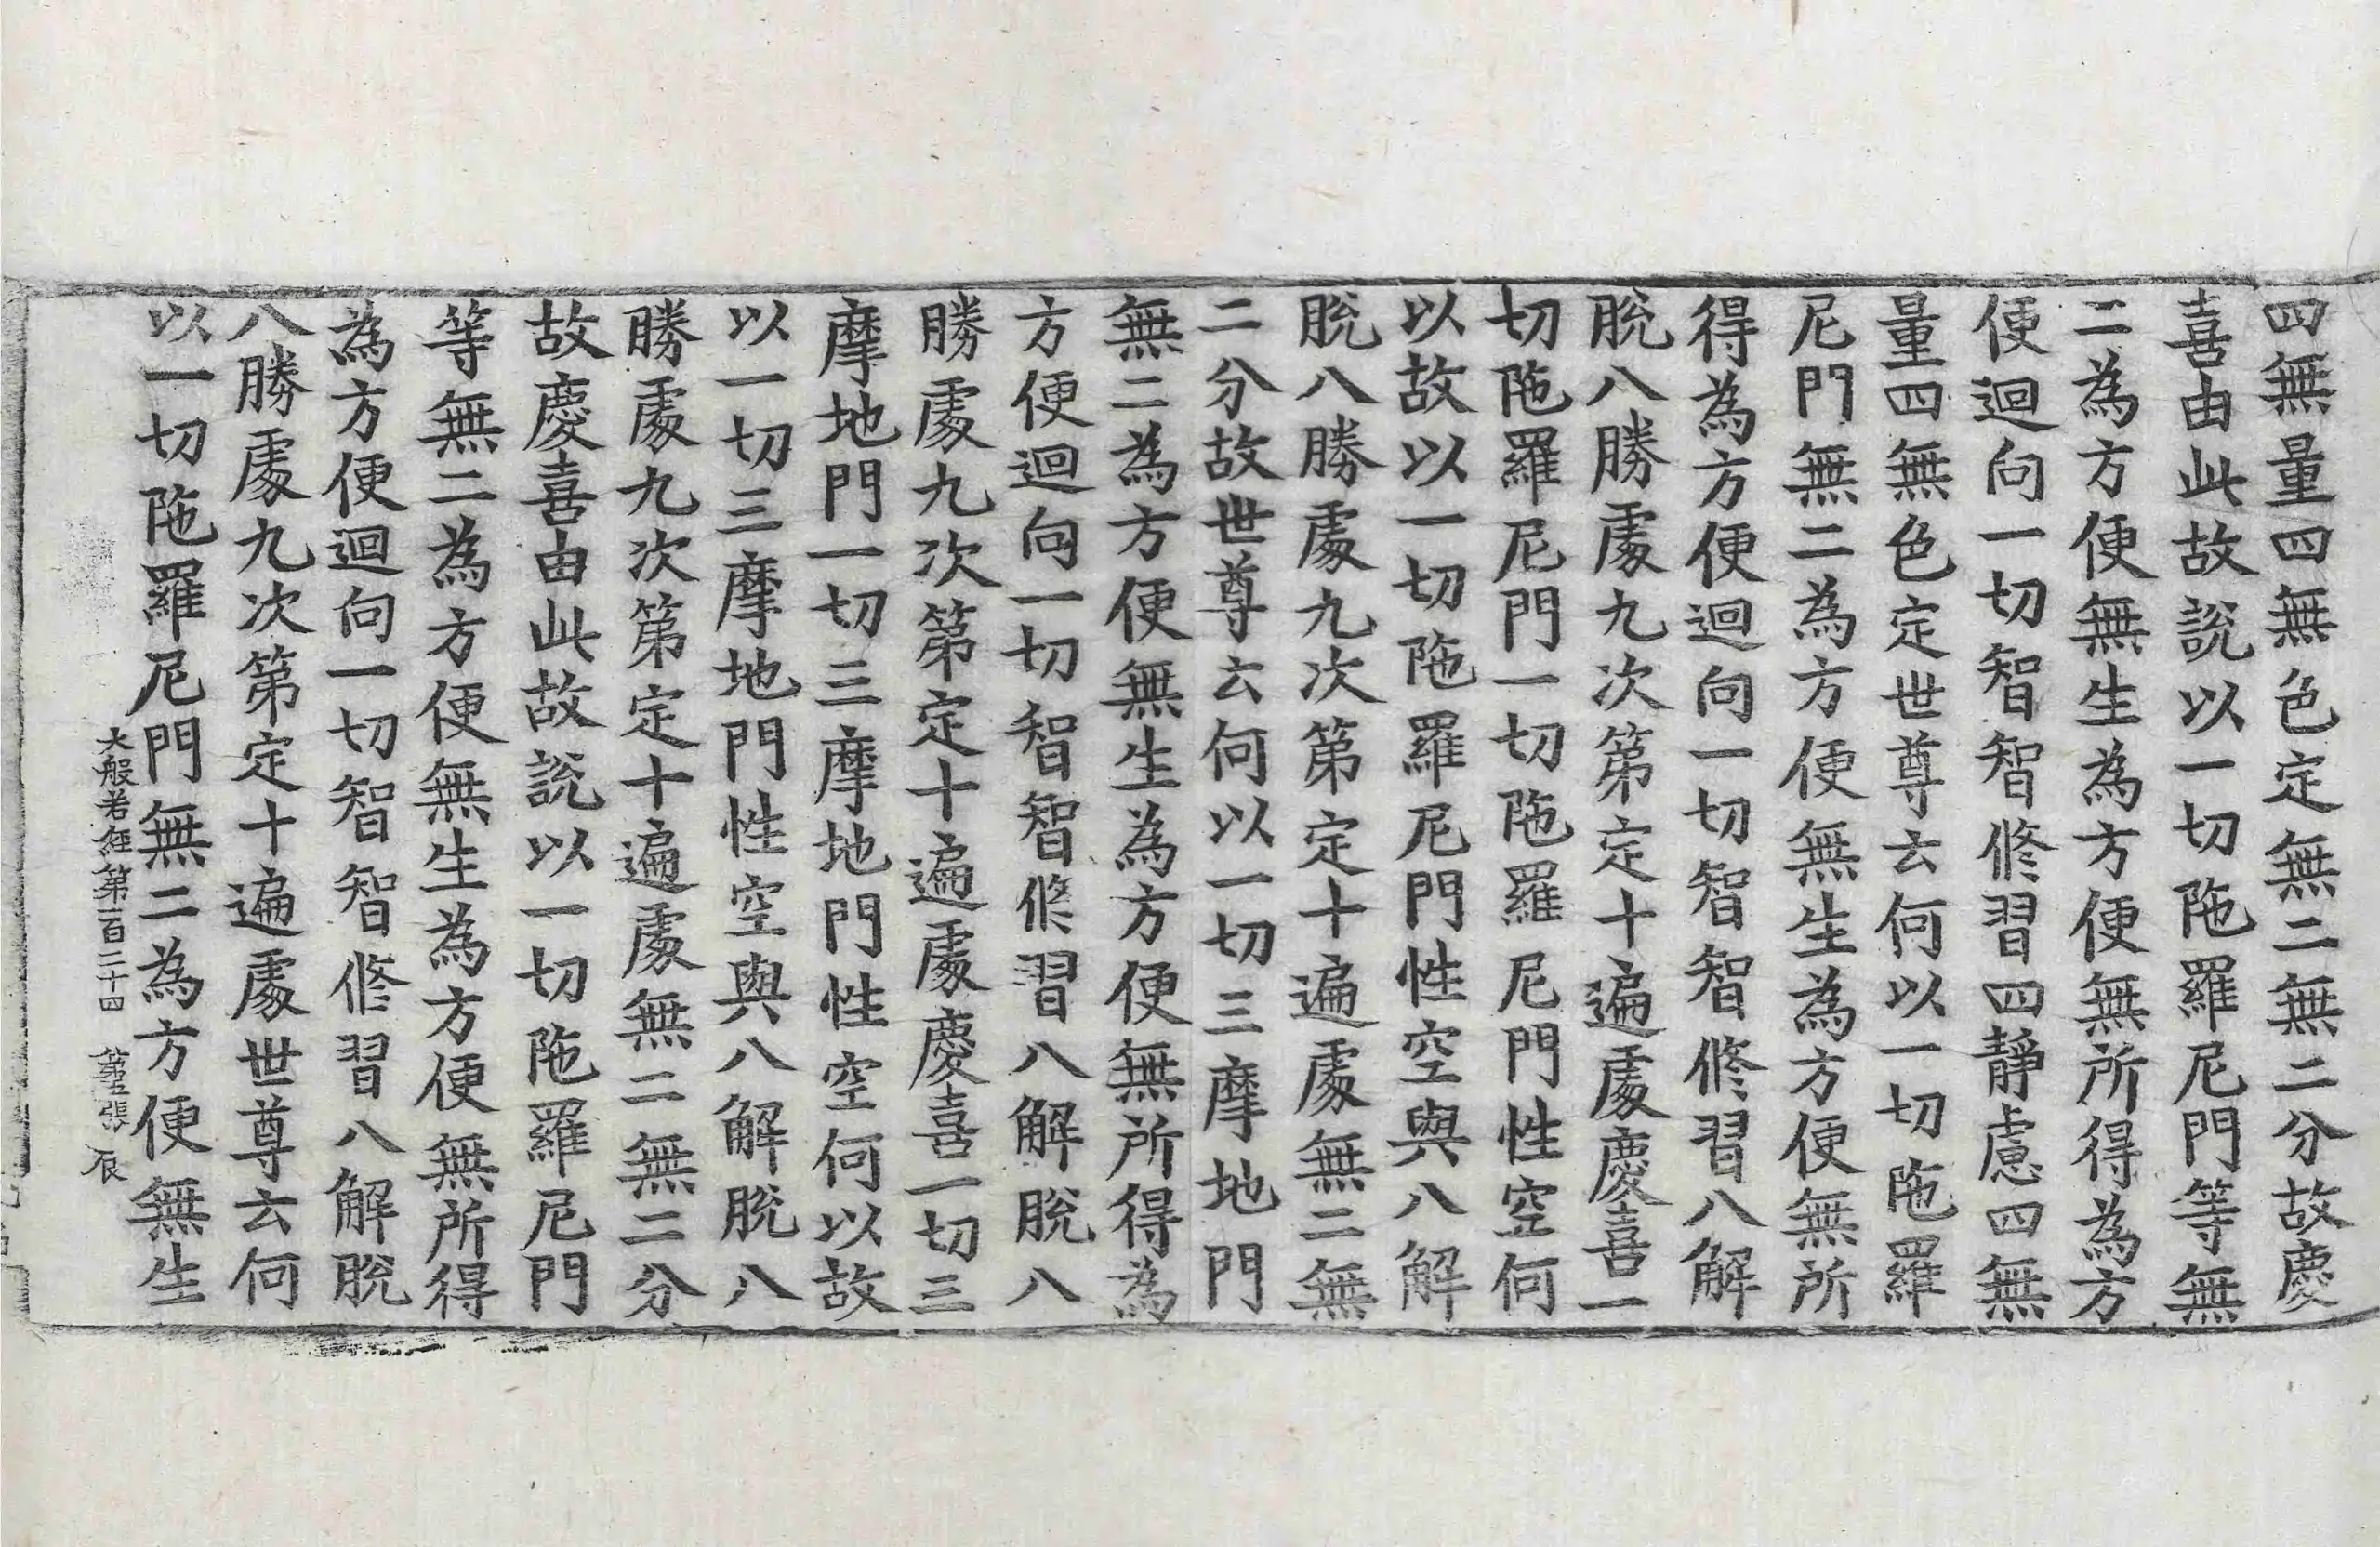 四無量四無色定無二無二分故慶
喜由此故說以一切陁羅尼門等無
二為方便無生為方便無所得為方
便迴向一切智智修習四靜慮四無
量四無色定世尊云何以一切陁羅
尼門無二為方便無生為方便無所
得為方便迴向一切智智修習八解
脫八勝處九次第定十遍處慶喜一
切陁羅尼門一切陁羅尼門性空何
以故以一切陁羅尼門性空與八解
脫八勝處九次第定十遍處無二無
二分故世尊云何以一切三摩地門
無二為方便無生為方便無所得為
方便迴向一切智智修習八解脫八
勝處九次第定十遍處慶喜一切三
摩地門一切三摩地門性空何以故
以一切三摩地門性空與八解脫八
勝處九次第定十遍處無二無二分
故慶喜由此故說以一切陁羅尼門
等無二為方便無生為方便無所得
為方便迴向一切智智修習八解脫
八勝處九次第定十遍處世尊云何
以一切陁羅尼門無二為方便無生
大般若經第一百二十四 第 張 辰